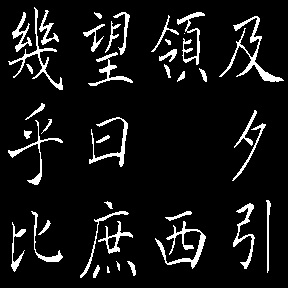 及夕引
領西
望曰庶
幾乎比